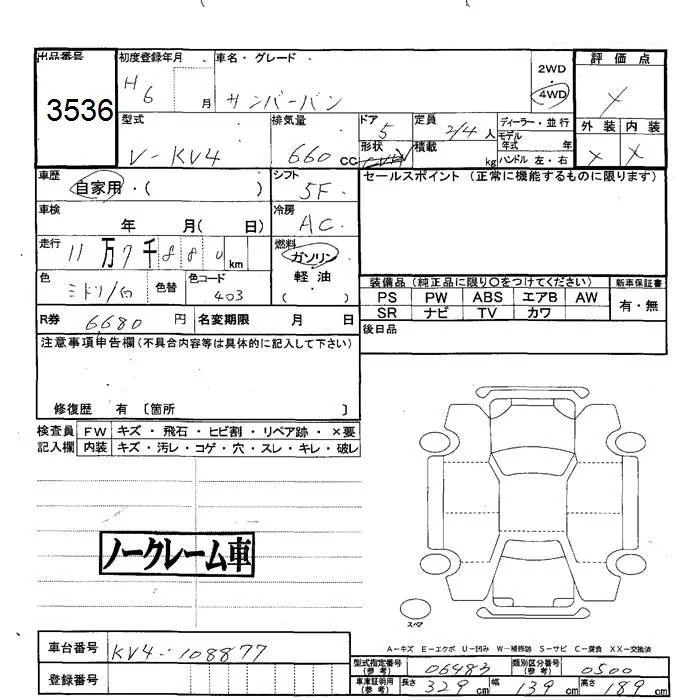 出品番号 初度登録年月 車名・グレード 2WD 評価点
3536 H6 月 サンバーバン 4WD
型式 排気量 ドア 定員 ディーラー・並行 外装 内装
V-KV4 660 CC 5 2/4 人 モデル年式 年
形状 積載 kg ハンドル 左・右 X X
車歴 自家用・( ) シフト 5F セールスポイント (正常に機能するものに限ります)
車検 年 月( 日) 冷房 AC
走行 11万7千880 km 燃料 ガソリン
軽油
色 ミドリ/白 色替 色コード 403 装備品 (純正品に限り○をつけてください) 新車保証書
PS PW ABS エアB AW 有・無
R券 6680 円 名変期限 月 日 SR ナビ TV カワ
注意事項申告欄 (不具合内容等は具体的に記入して下さい) 後日品
修復歴 有 〔箇所 〕
検査員 FW キズ・飛石・ヒビ割・リペア跡・×要
記入欄 内装 キズ・汚レ・コゲ・穴・スレ・キレ・破レ
ノークレーム車
スペア
A-キズ E-エクボ U-凹み W-補修跡 S-サビ C-腐食 XX-交換済
車台番号 KV4-108877 型式指定番号 (参考) 06483 類別区分番号 (参考) 0500
登録番号 車庫証明用 (参考) 長さ 329 cm 幅 139 cm 高さ 189 cm